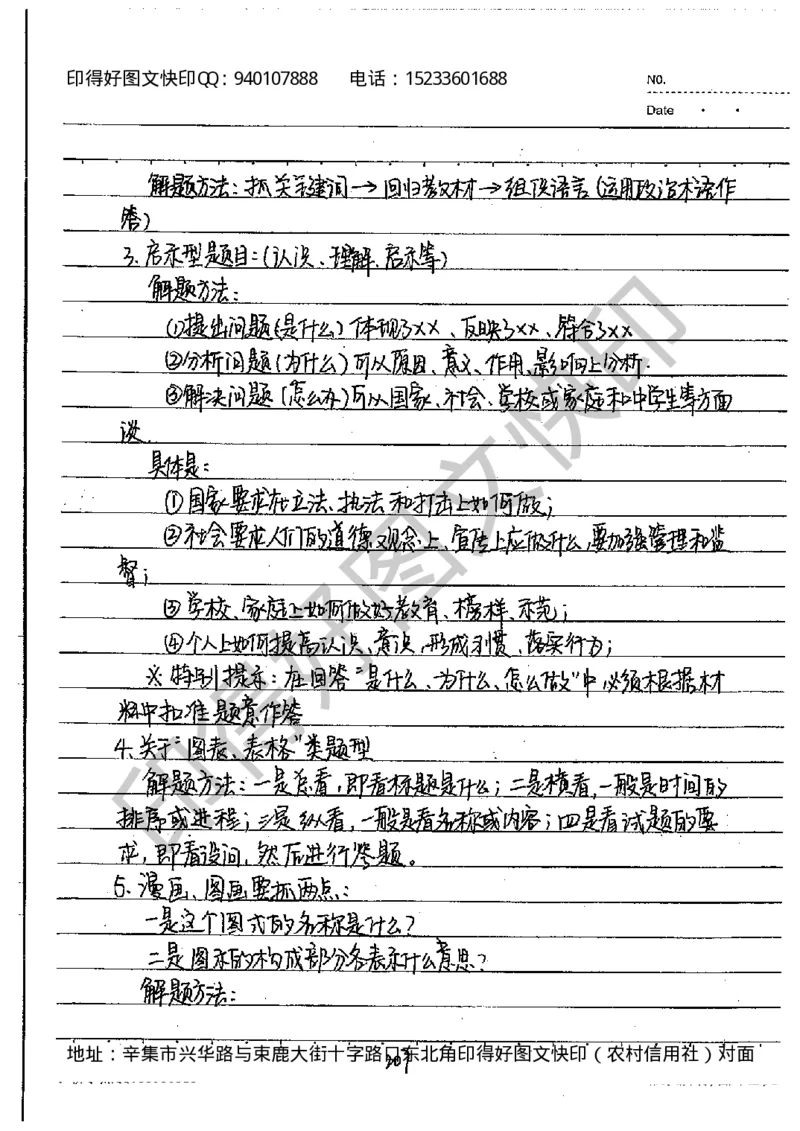 印得好图文快印QQ：940107888 电话：15233601688
NO.
Date
解题方法：抓关键词→回归教材→组织语言（运用政治术语作
答）
3、启示型题目：（认识、理解、启示等）
解题方法：
①提出问题（是什么）体现了××、反映了××、符合了××
②分析问题（为什么）可从原因、意义、作用、影响上分析.
③解决问题（怎么办）可从国家、社会、学校或家庭和中学生等方面
谈.
具体是：
①国家要求在立法、执法和打击上如何做；
②社会要求人们的道德观念上、宣传上应做什么，要加强管理和监
督；
③学校、家庭上如何做好教育、榜样、示范；
④个人上如何提高认识、意识，形成习惯、落实行为；
※特别提示：在回答“是什么、为什么、怎么做”中必须根据材
料中扣准题意作答
4、关于“图表、表格”类题型
解题方法：一是总看，即看标题是什么；二是横看，一般是时间的
排序或进程；三是纵看，一般是看名称或内容；四是看试题的要
求，即看设问，然后进行答题。
5、漫画、图画要抓两点：
一是这个图式的名称是什么？
二是图示的构成部分各表示什么意思？
解题方法：
地址：辛集市兴华路与束鹿大街十字路口东北角印得好图文快印（农村信用社）对面
印得好图文快印